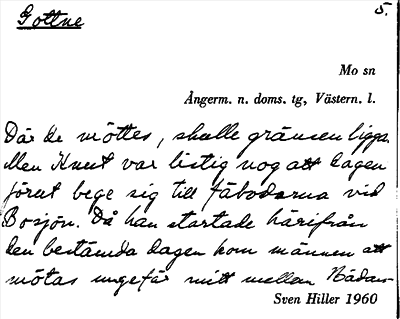 Gottne 5.
Mo sn
Ångerm. n. doms. tg, Västern. l.
Där de möttes, skulle gränsen ligga.
Men Knut var listig nog att dagen
förut bege sig till fäbodarna vid
Bosjön. Då han startade härifrån
den bestämda dagen kom männen att
mötas ungefär mitt mellan Nådan-
Sven Hiller 1960